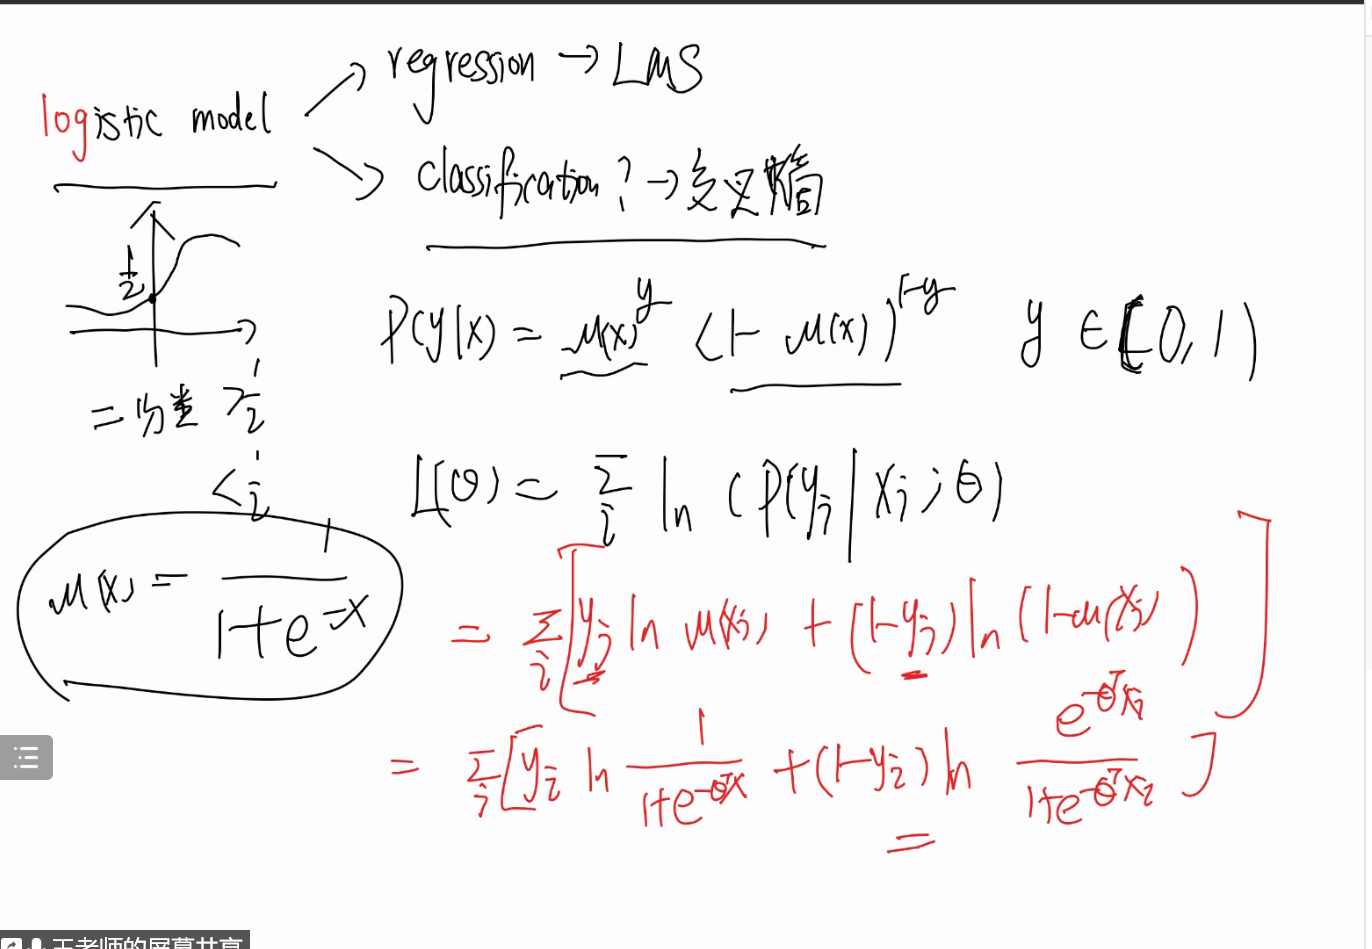 logistic model
regression → LMS
classification? → 交叉熵
1/2
二分类 > 1/2
< 1/2
μ(x) = 1/(1+e^-x)
P(y|x) = μ(x)^y (1-μ(x))^1-y y ∈ [0,1)
L(θ) = Σ_i ln (P(y_i|x_i;θ)
= Σ_i [y_i ln μ(x_i) + (1-y_i) ln (1-μ(x_i))]
= Σ_i [y_i ln 1/(1+e^-θ^Tx) + (1-y_i) ln e^-θ^Tx_i/(1+e^-θ^Tx_i)]
=
王老师的屏幕共享